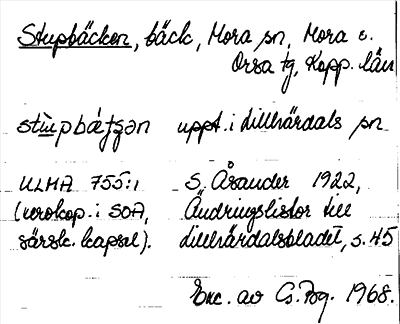 Stupbäcken, bäck, Mora sn, Mora o.
Orsa tg, Kopp. län
uppt. i Lillhärdals sn
ULMA 755:1 S. Åsander 1922,
(xerokop. i SOA, Ändringslistor till
särsk. kapsel). Lillhärdalsbladet, s. 45
Exc. av 1968.